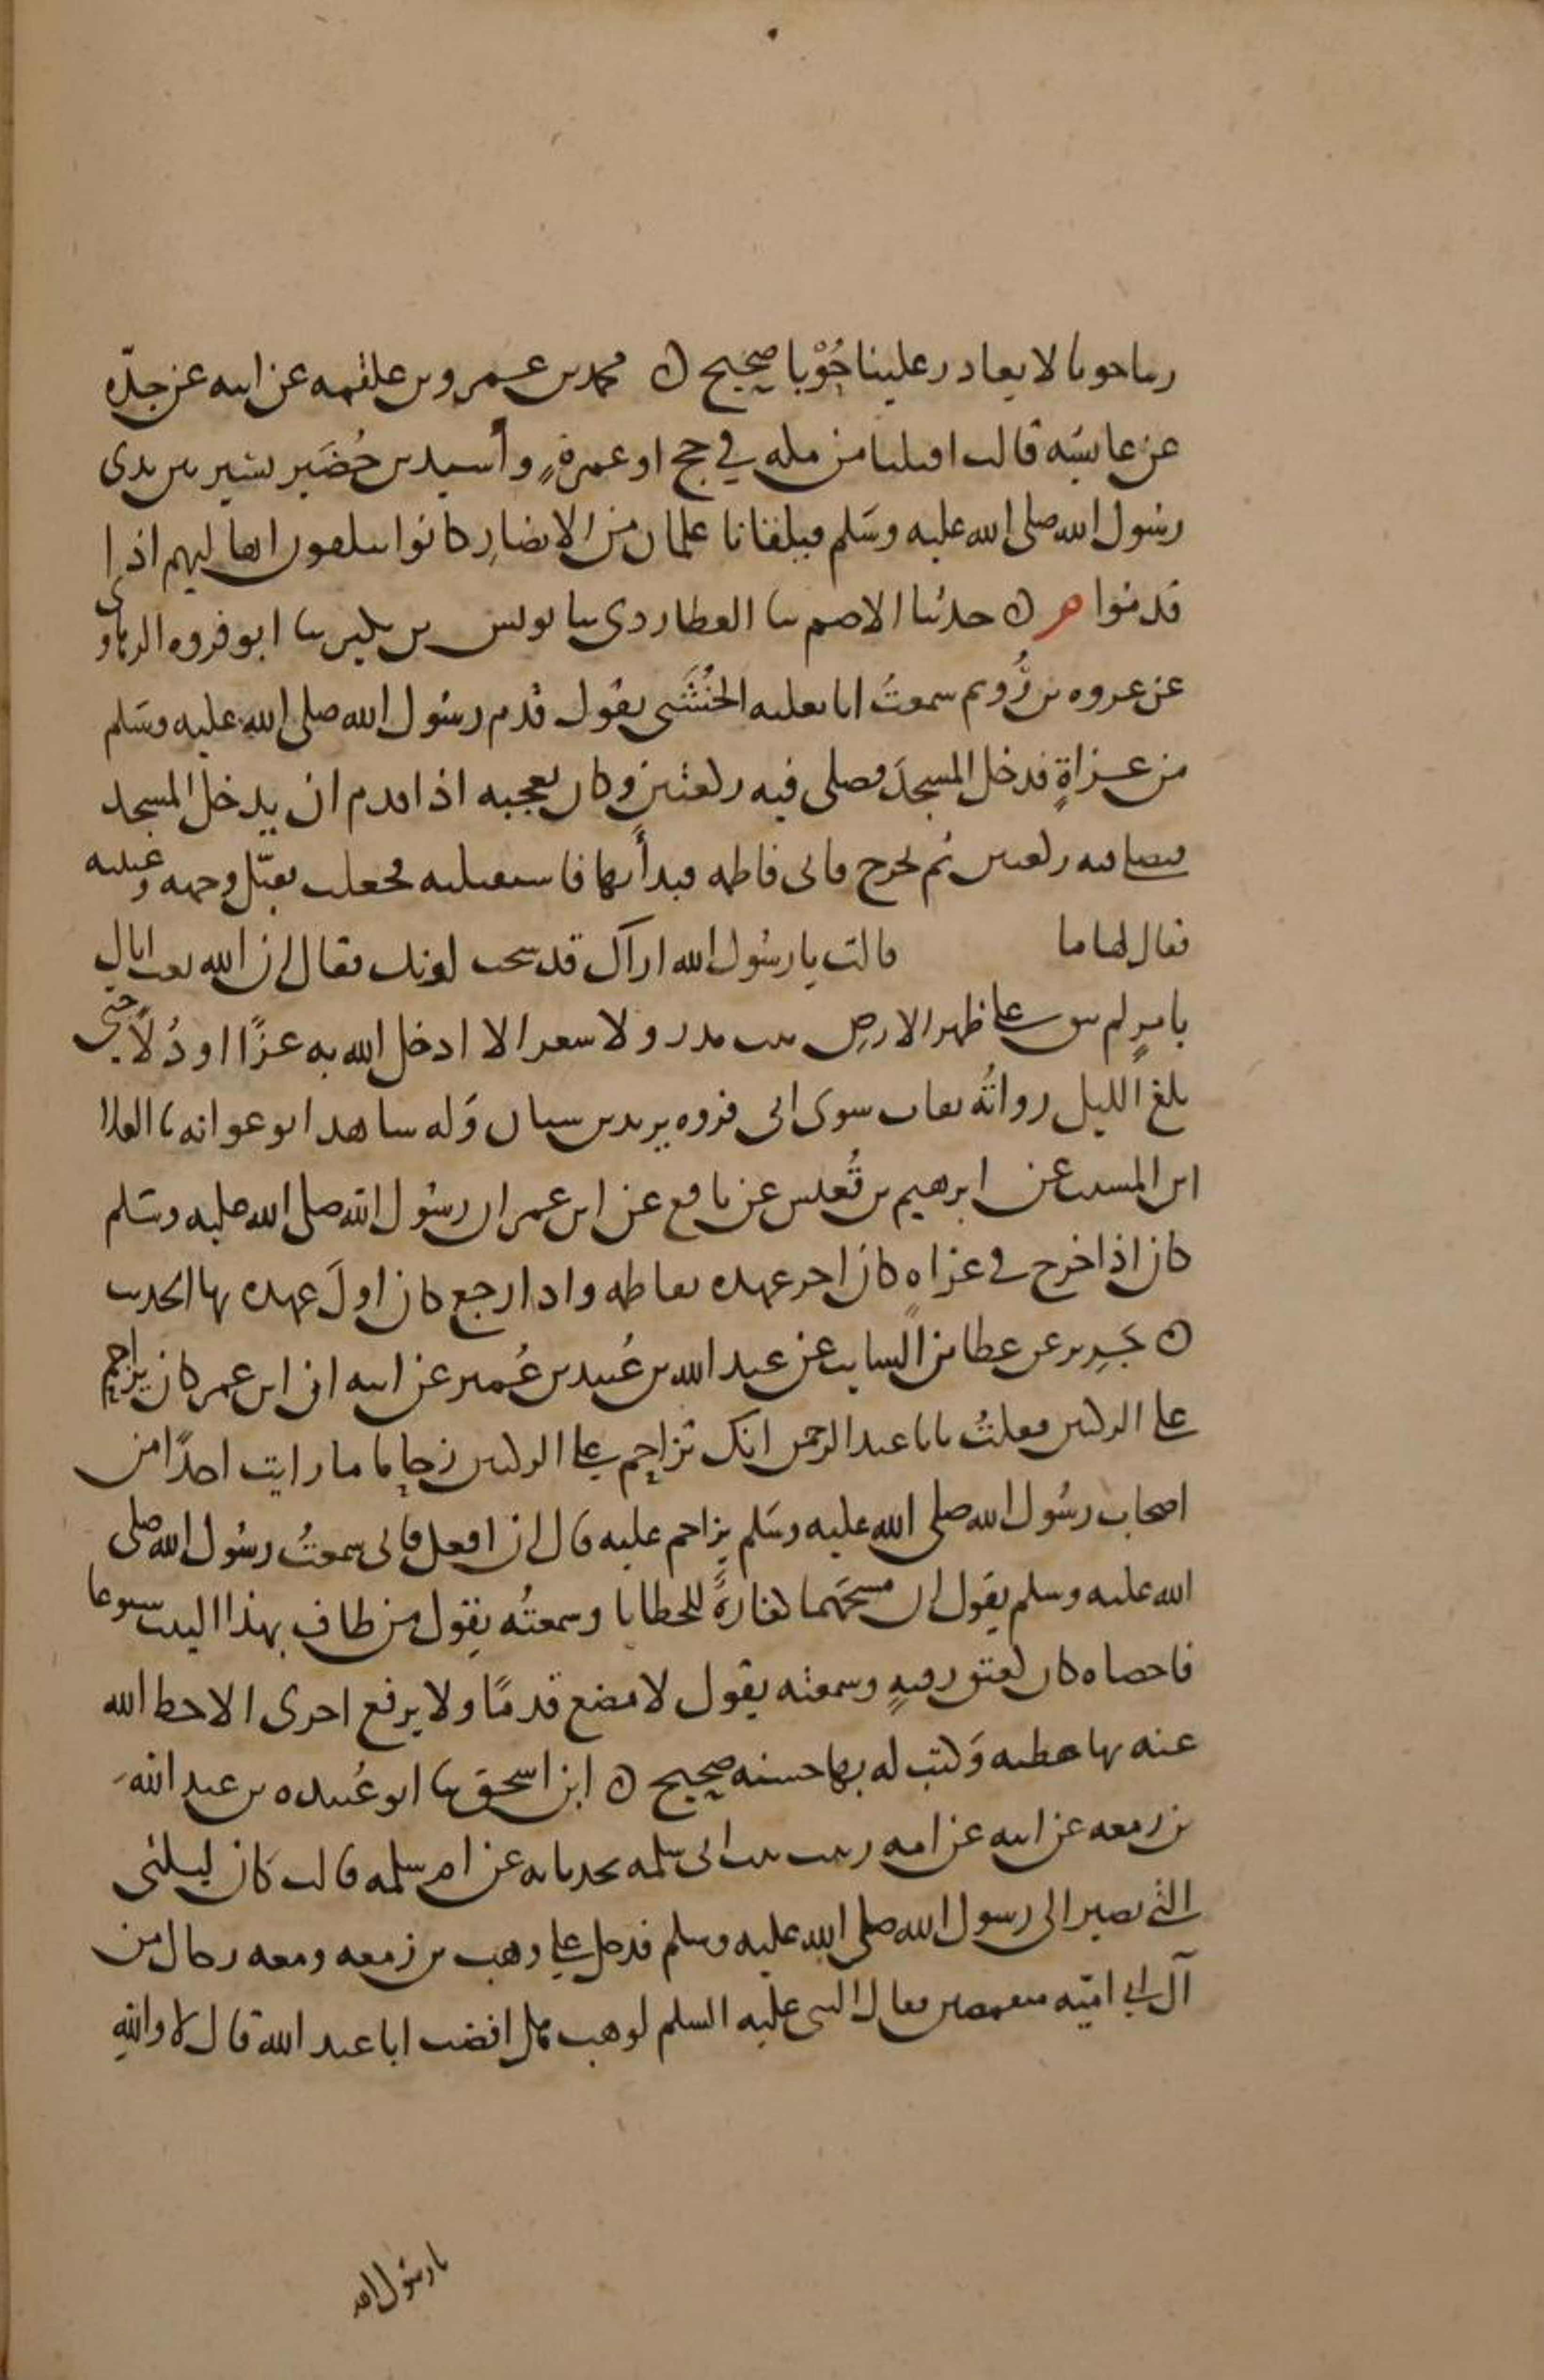 ربنا حوبا لا يغادر علينا حُوْبا صحيح ن محمد بن عمرو بن علقمه عن ابيه عن جدّه
عن عايشه قالت اقبلنا من مكه في حج او عمرةٍ وأسيد بن حُضَير يسير بين يدى
رسُول الله صلى الله عليه وسَلم فيلقانا غلمان من الانصارِ كانوا يتلقون اهاليهم اذا
قدمُوا م ن حدثنا الاصم نا العطاردى نا يونس بن بكير نا ابو فروه الرهاوى
عن عروه بن رُويم سمعتُ ابا ثعلبه الخُشَنى يقول قدم رسُول الله صلى الله عليه وسَلم
من غزاةٍ فدخل المسجدَ فصلى فيه ركعتين وكان يعجبه اذا قدم ان يدخل المسجد
فيصلى فيه ركعتين ثم خرج فاتى فاطمه فبدأ بها فاستقبلته فجعلت تقبّل وجهه وعينيه
فقال لها ما قالت يا رسُول الله اراك قد شحب لونك فقال ان الله بعث اباكِ
بامرٍ لم يبق على ظهر الارض بيت مدر ولا شعر الا ادخل الله به عزًا او ذُلاً حتى
بلغ الليل رواتُه ثقات سوى ابى فروه يزيد بن سنان وَله شاهد ابو عوانه نا العلا
ابن المسيب عن ابرهيم بن قُعيس عن نافع عن ابن عمر ان رسُول الله صلى الله عليه وسَلم
كان اذا خرج في غزاه كان اخر عهده بفاطمه واذا رجع كان اولَ عهده بها الحديث
ن جَرير عن عطا بن السايب عن عبد الله بن عُبيد بن عُمير عن ابيه ان ابن عمر كان يزاحم
على الركنين فقلتُ يابا عبد الرحمن انك تزاحم على الركنين زحاما ما رايت احدًا من
اصحاب رسُول الله صلى الله عليه وسَلم يزاحم عليه قال ان افعل فانى سمعتُ رسُول الله صلى
الله عليه وسلم يقول ان مسحَهما كفارةً للخطايا وسمعتُه يقول من طاف بهذا البيت سبوعا
فاحصاه كان كعتق رقبهٍ وسمعته يقول لا يضع قدمًا ولا يرفع اخرى الا حط الله
عنه بها خطيه وَكتب له بها حسنه صحيح ن ابن اسحق نا ابو عُبيده بن عبد الله
بن زمعه عن ابيه عن امه زينب بنت ابى سلمه يحدثانه عن ام سلمه قالت كان ليلتى
التى يصير الى رسول الله صلى الله عليه وسلم فدخل على وهب بن زمعه ومعه رجال من
آل ابى اميّه متقمصين فقال النبى عليه السلم لوهب هل افضت ابا عبد الله قال لا والله
يا رسُول الله